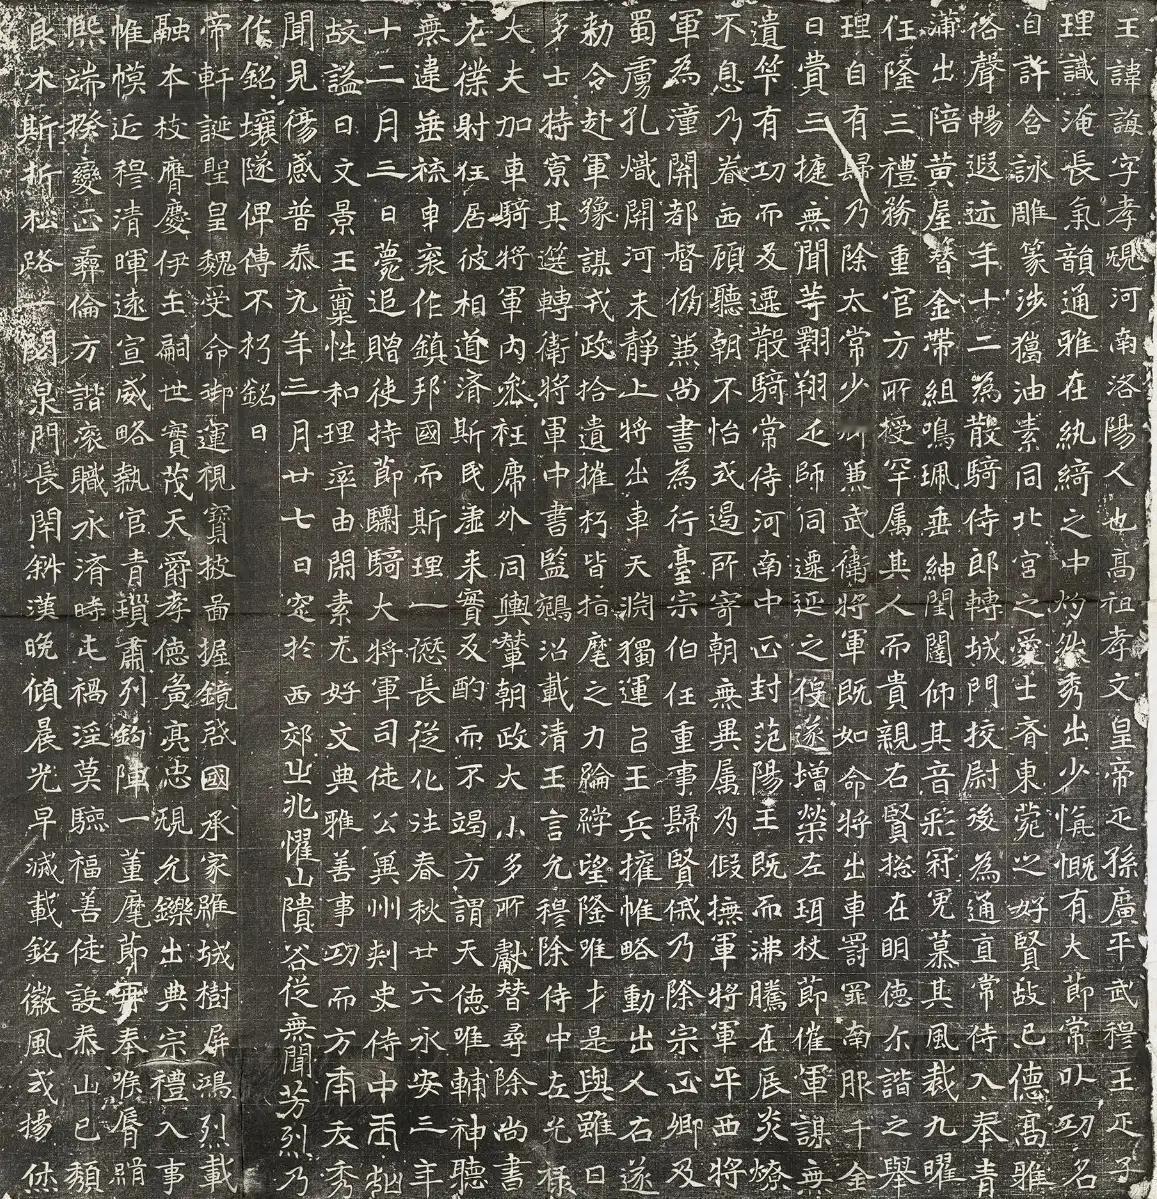 王諱誨字孝規河南洛陽人也高祖孝文皇帝之孫廣平武穆王之子
理識淹長氣韻通雅在紈綺之中灼然秀出少慷慨有大節常以功名
自許含詠雕篆涉獵油素同北宮之愛士齊東菀之好賢故已德高雅
俗聲暢遐迩年十二為散騎侍郎轉城門校尉後為通直常侍入奉青
蒲出陪黃屋簪金帶組鳴珮垂紳閨闥仰其音彩冠冕慕其風裁九曜
任隆三禮務重官方所授罕属其人而貴親右賢揔在明德尒諧之舉
理自有歸乃除太常少卿兼武衛將軍既如命將出車罰罪南服千金
日費三捷無聞等翺翔之師同遷延之役遂增榮左珥杖節催軍謀無
遺筭有功而反遷散騎常侍河南中正封范陽王既而沸騰在辰炎燎
不息乃眷西顧聽朝不怡式遏所寄朝無異属乃假撫軍將軍平西將
軍為潼關都督仍兼尚書為行臺宗伯任重事歸賢戚乃除宗正卿及
蜀虜孔熾關河未靜上將出車天淵獨運召王兵擁帷略動出人右遂
勑令赴軍豫謀戎政拾遺摧朽皆指麾之力綸綍望隆唯才是與雖曰
多士特寮其選轉衛將軍中書監鵷沼載清王言允穆除侍中左光祿
大夫加車騎將軍內參衽席外同輿輦朝政大小多所獻替尋除尚書
左僕射任居彼相道済斯民虛来實反酌而不竭方謂天德唯輔神聽
無違垂旒申衮作鎮邦國而斯理一愆長從化往春秋廿六永安三年
十二月三日薨追贈使持節驃騎大將軍司徒公冀州刾史侍中王如
故謚曰文景王稟性和理率由閑素尤好文典雅善事功而方肅友秀
聞見傷感普泰元年三月廿七日窆於西郊之兆懼山隤谷從無聞芳烈乃
作銘壤隧俾傳不朽銘曰
帝軒誕聖皇魏受命御運視寶披啚握鏡啓國承家雕城樹屏鴻烈載
融本枝膺慶伊主嗣世寶茂天爵孝德彙亮忠規允鑠出典宗禮入事
帷幙近穆清暉遠宣威略執官青瑣肅列鈎陣一董麾節奉喉脣緝
熙端揆變正彝倫方諧衮職永済時屯禍淫莫驗福善徒設泰山已頹
良木斯折松路一閟泉門長閇斜漢晚傾晨光早滅載銘徽風式揚休